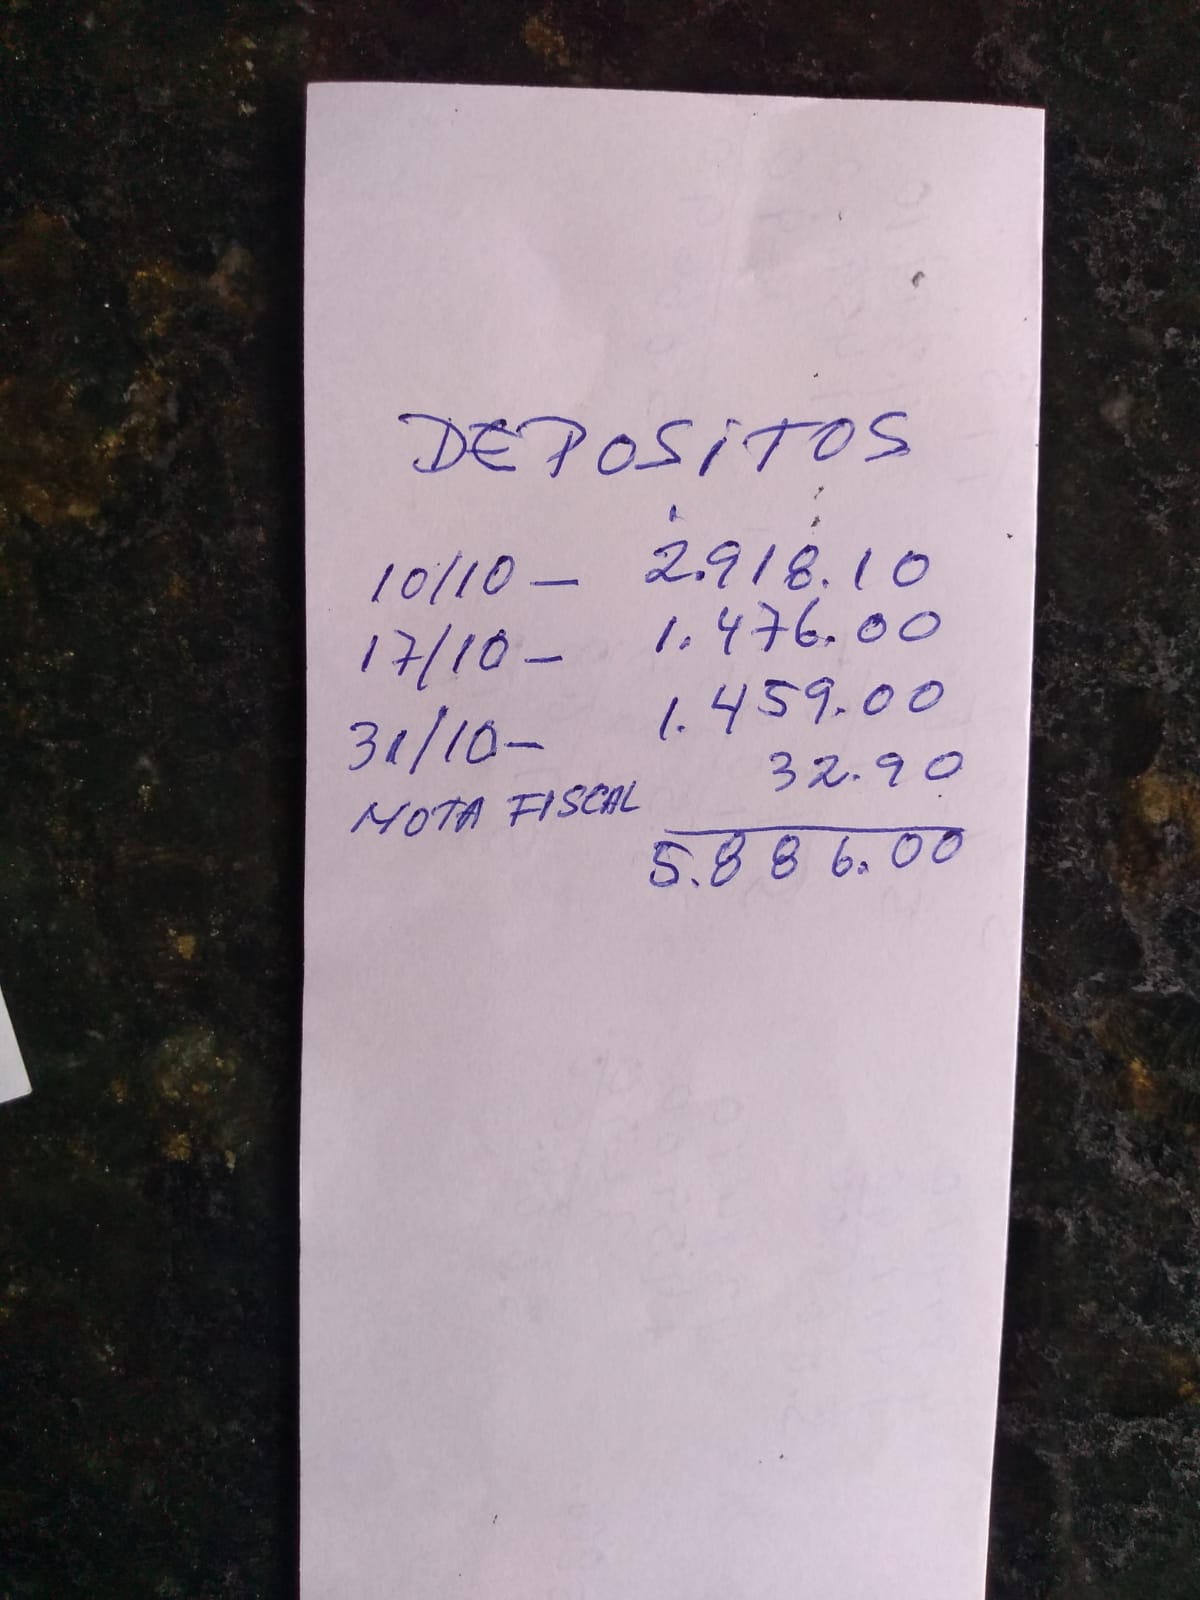 DEPOSITOS
10/10 - 2.918.10
17/10 - 1.476.00
31/10 - 1.459.00
NOTA FISCAL 32.90
5.886.00